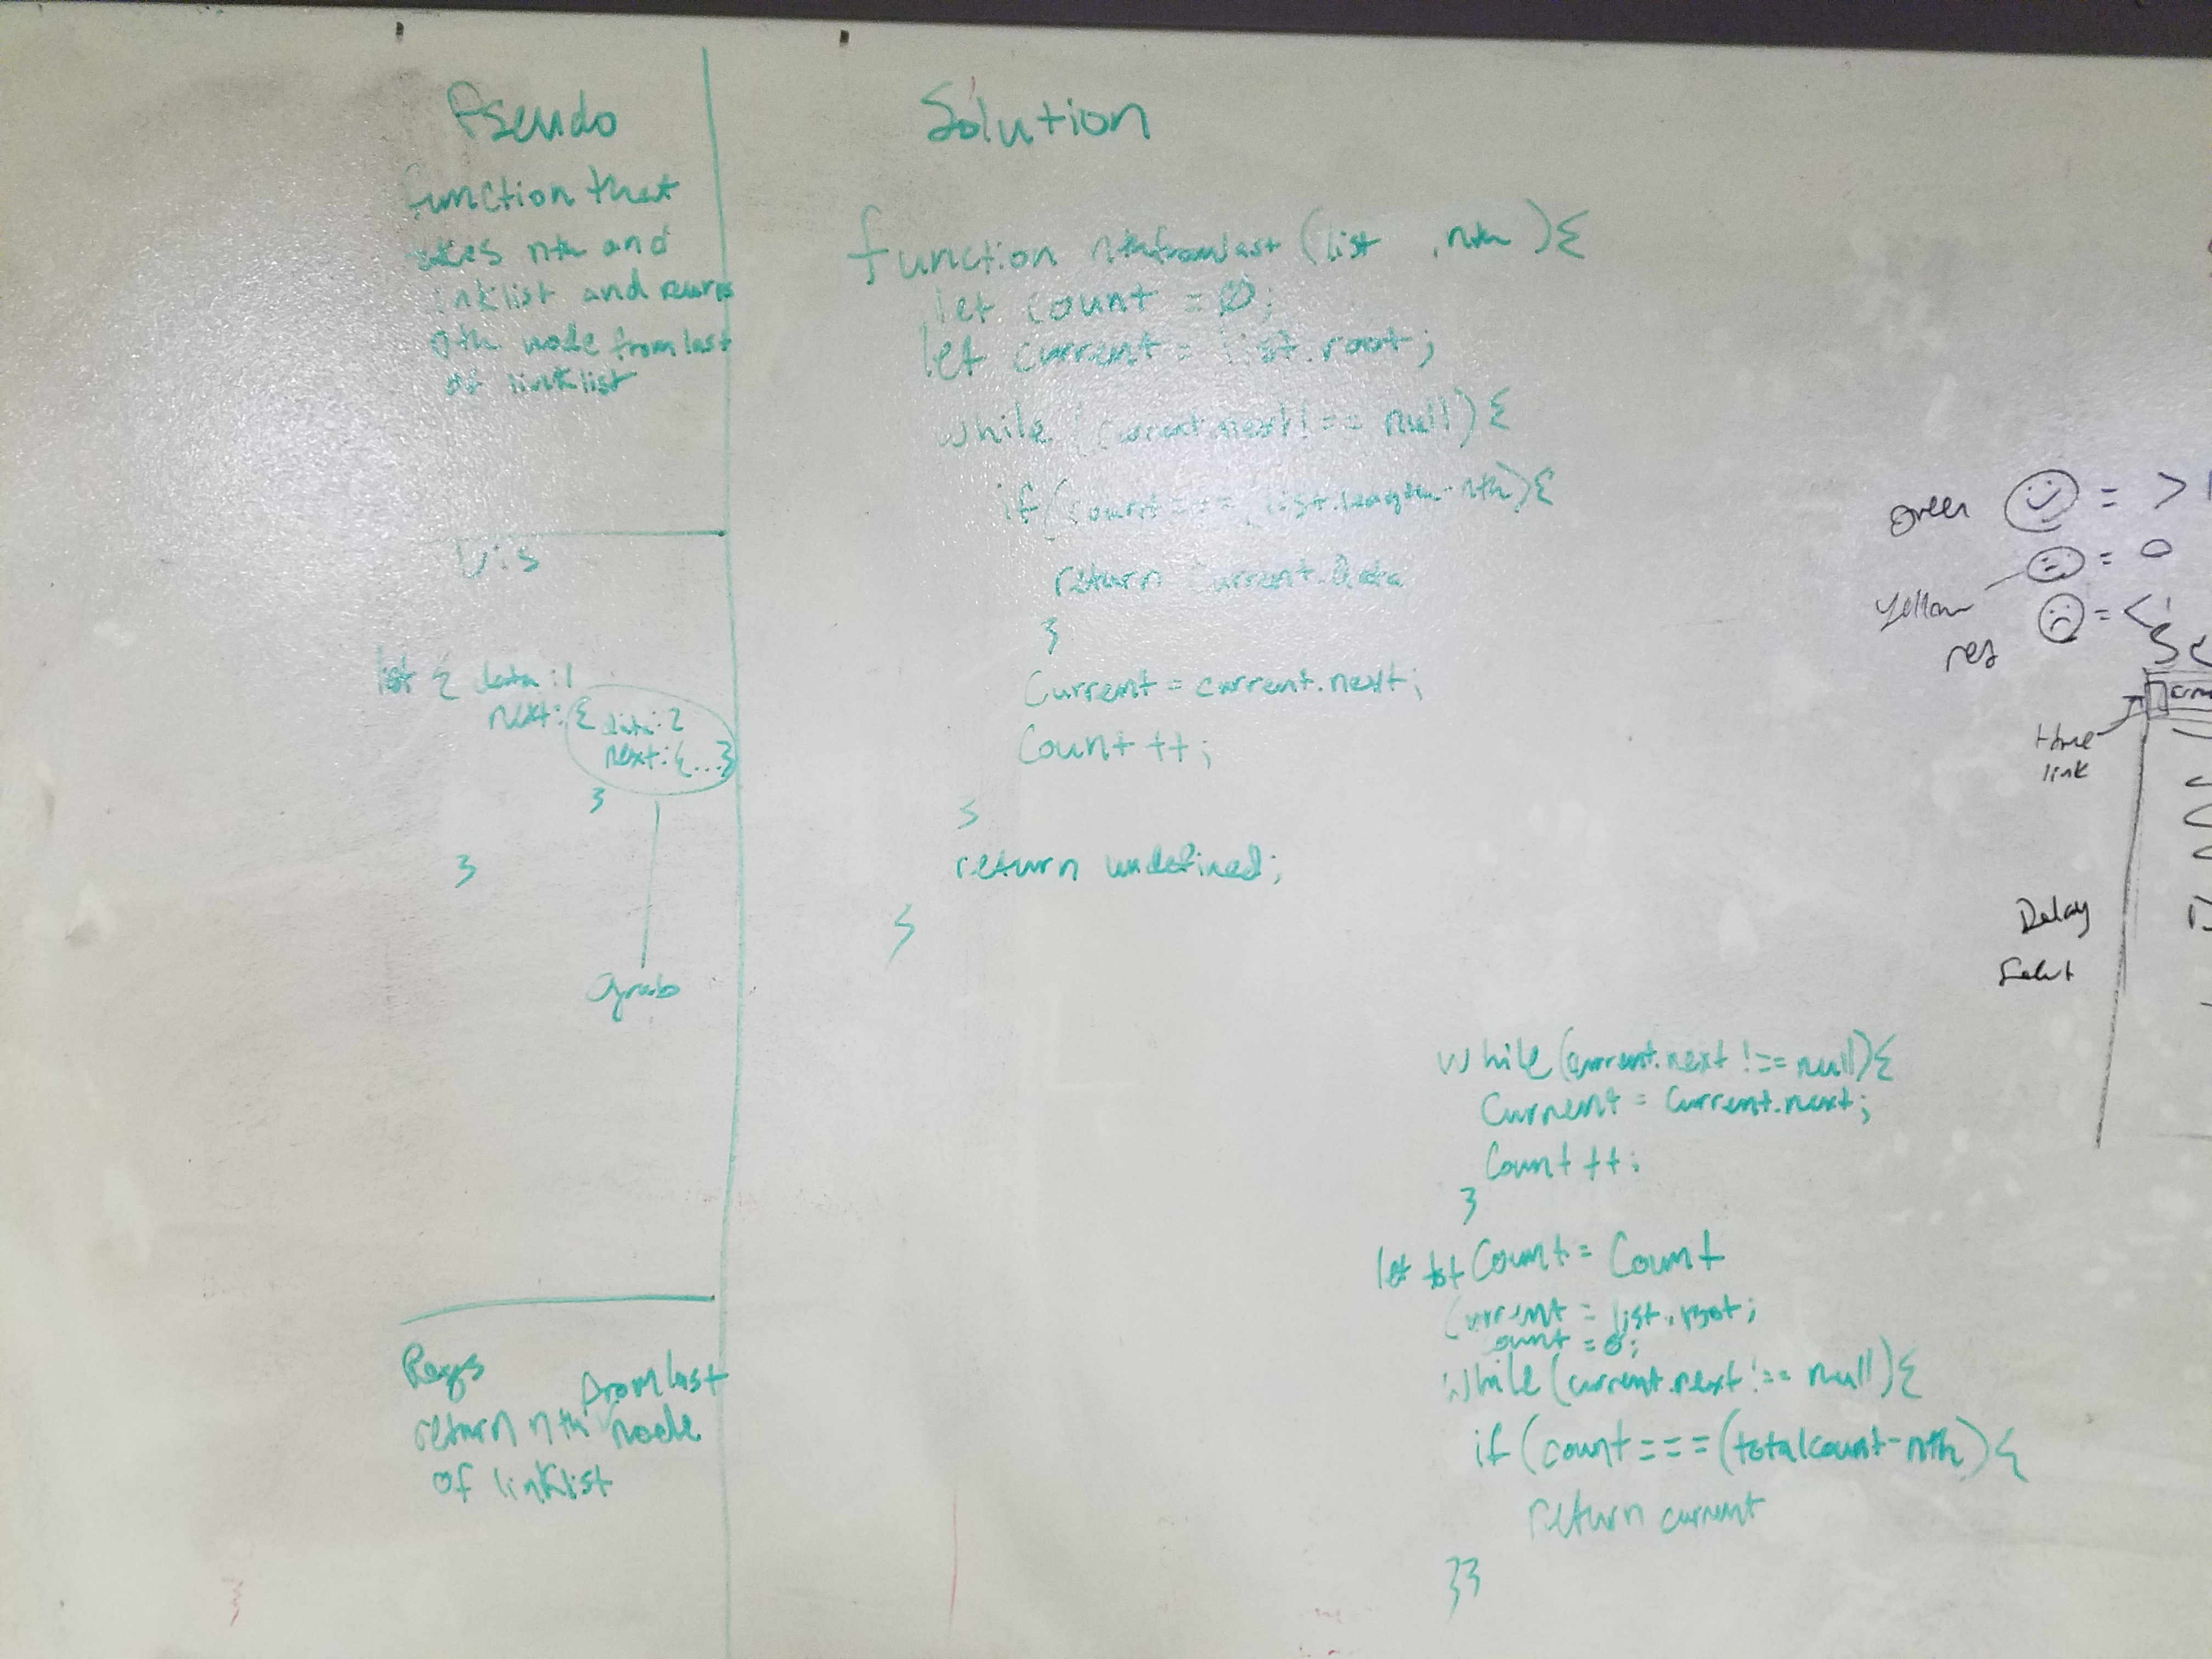 Pseudo
function that
takes nth and
linklist and returns
nth node from last
of linklist
Vis
list { data:1
next: { data:2
next:{...}
}
}
grab
Reqs
from last
return nth node
of linklist
Solution
function nthfromlast (list , nth ){
let count = 0;
let current = list.root;
while (current.next !== null) {
if (count === (list.length - nth) {
return current.data
}
Current = current.next;
Count ++;
}
return undefined;
}
while (current.next !== null){
Current = Current.next;
Count ++;
}
let tot Count = Count
Current = list.root;
ount = 0;
while (current.next !== null) {
if (count === (totalcount - nth) {
return current
}}
Green = >
= 0
Yellow
= <
red
Home
link
Delay